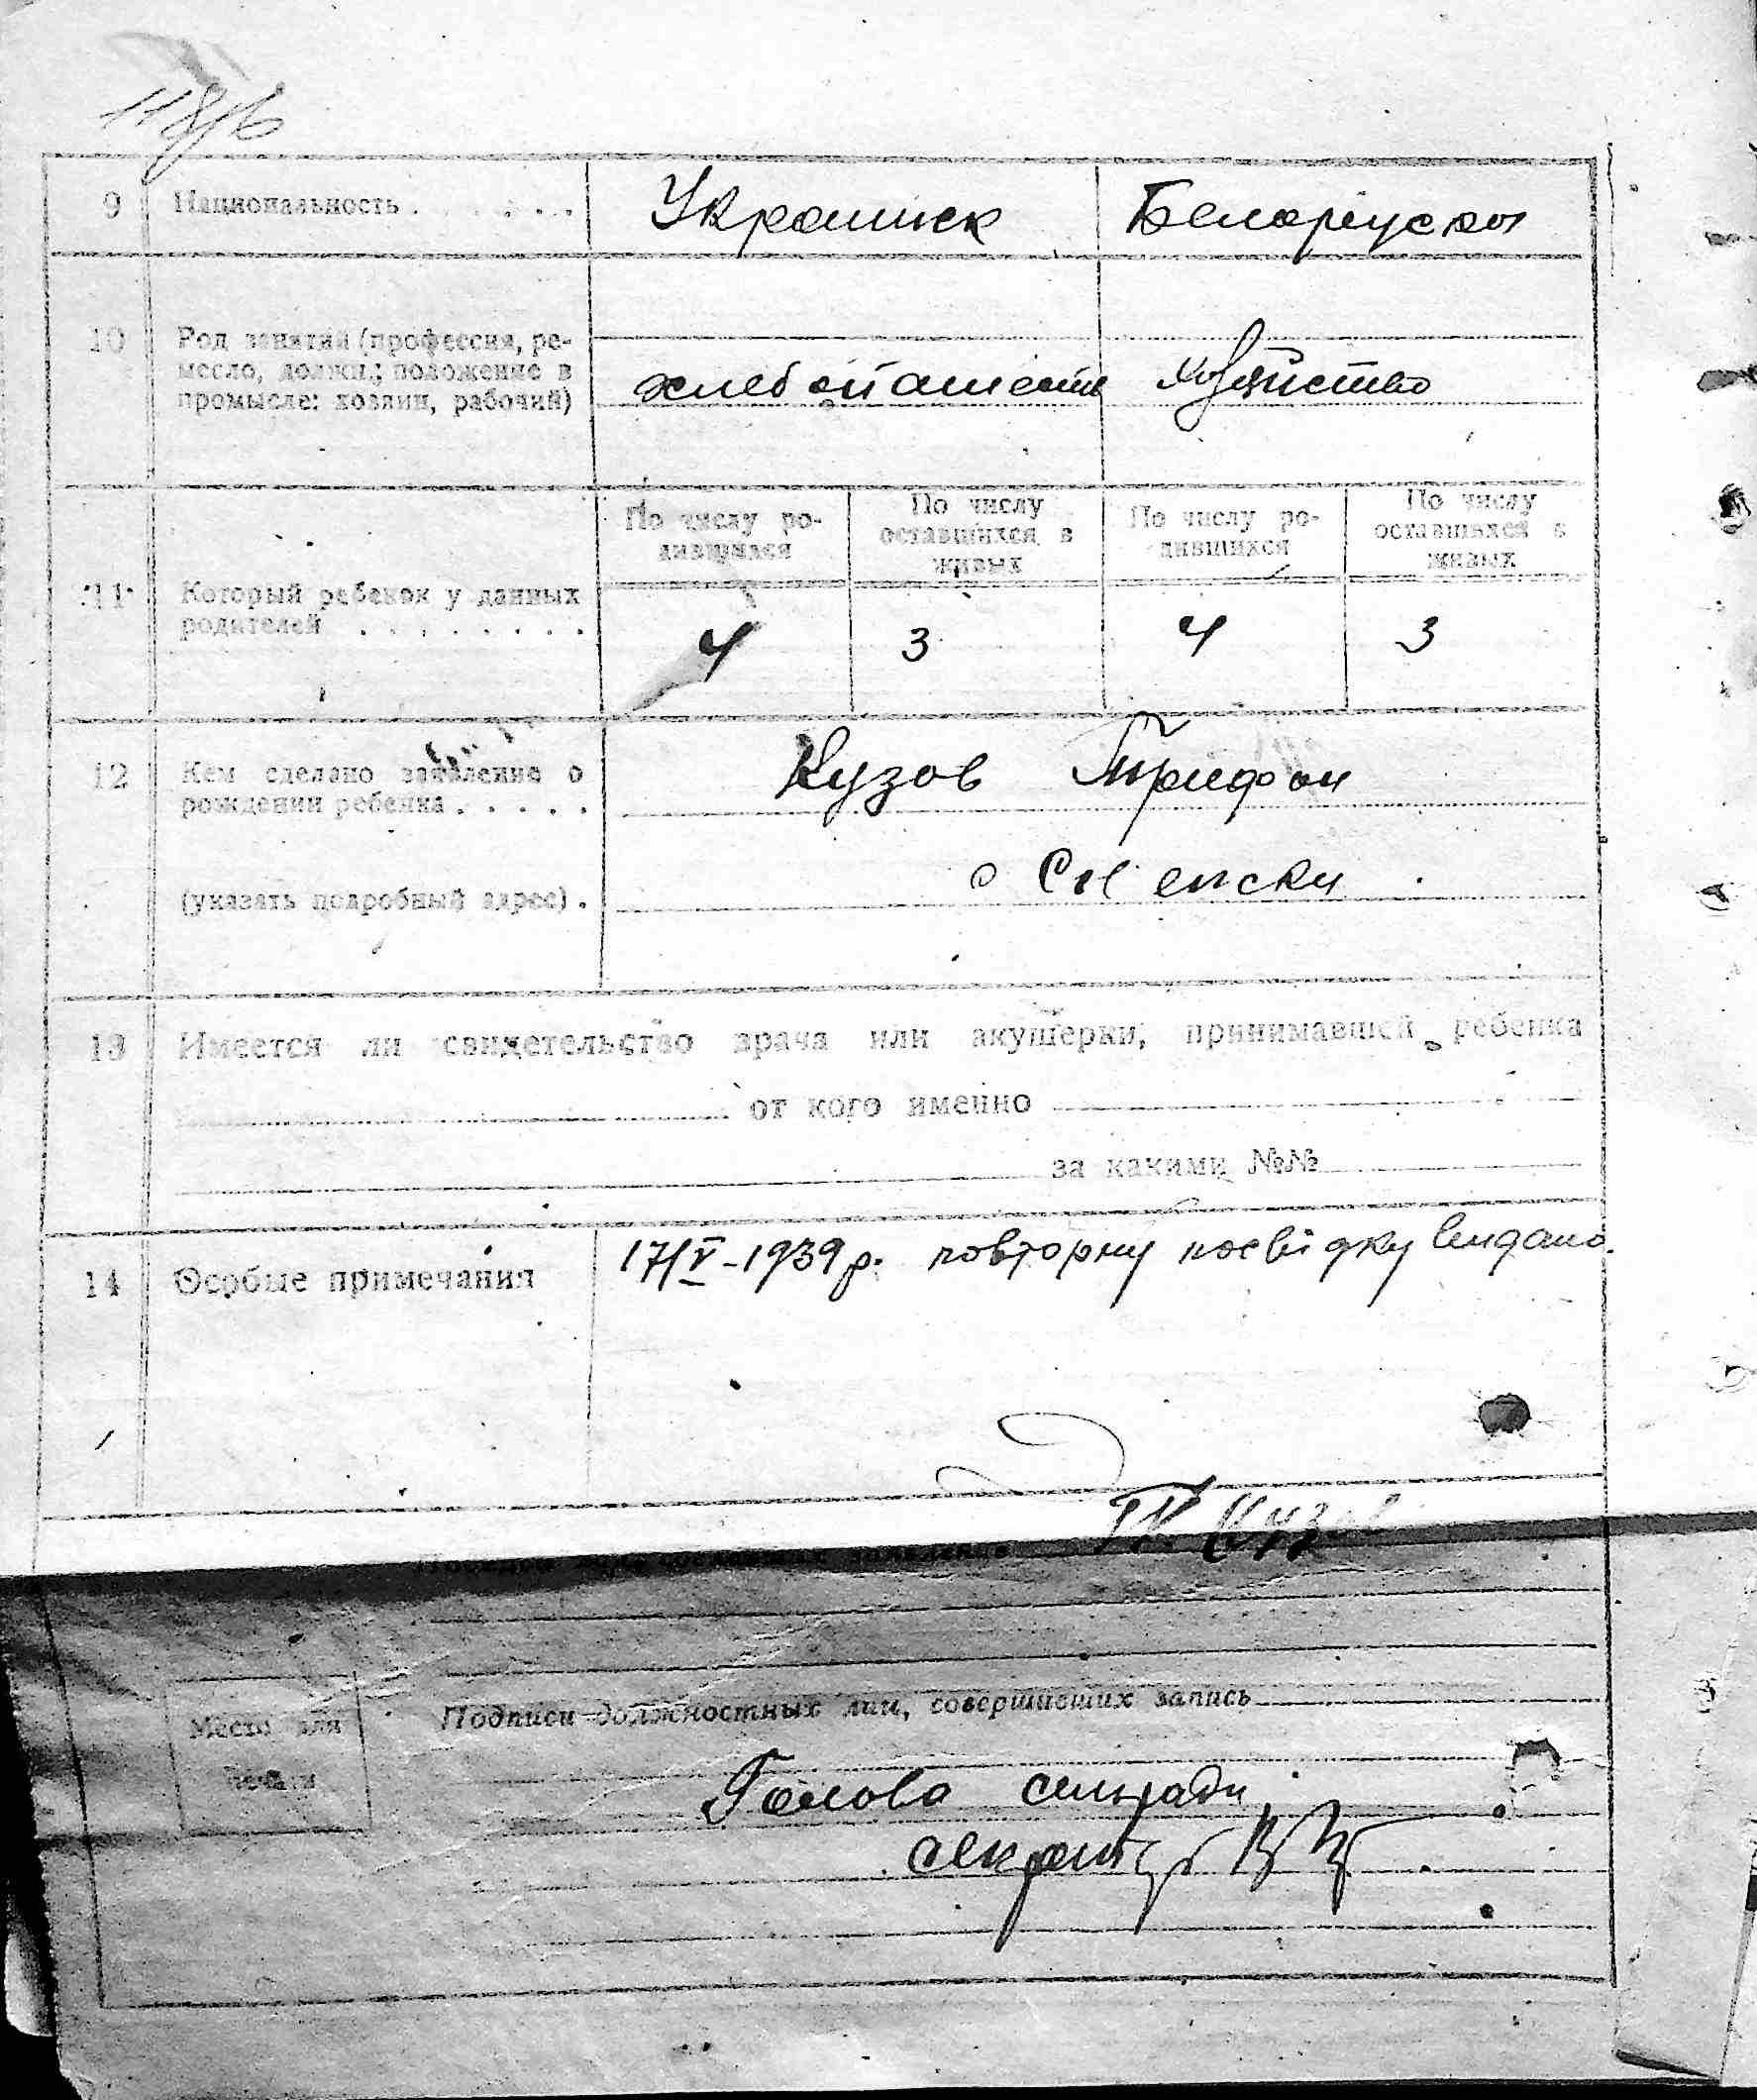 118/6
9 Национальность . . . . . . Украинек Белоруска
10 Род занятий (профессия, ре-
месло, должн.; положение в
промысле: хозяин, рабочий)
хлебопашест хозяйство
По числу ро-
дившихся
По числу
оставшихся в
живых
По числу ро-
дившихся
По числу
оставшихся в
живых
11 Который ребенок у данных
родителей . . . . . . . .
4 3 4 3
12 Кем сделано заявление о
рождении ребенка . . . . .
Кузов Трифон
(указать подробный адрес) .
с
13 Имеется ли свидетельство врача или акушерки, принимавшей ребенка
от кого именно
за какими №№
14 Особые примечания
17/V-1939 р. повторну посвідку видано.
Подписи должностных лиц, совершивших запись
Место для
печати
Голова сельради
секрет